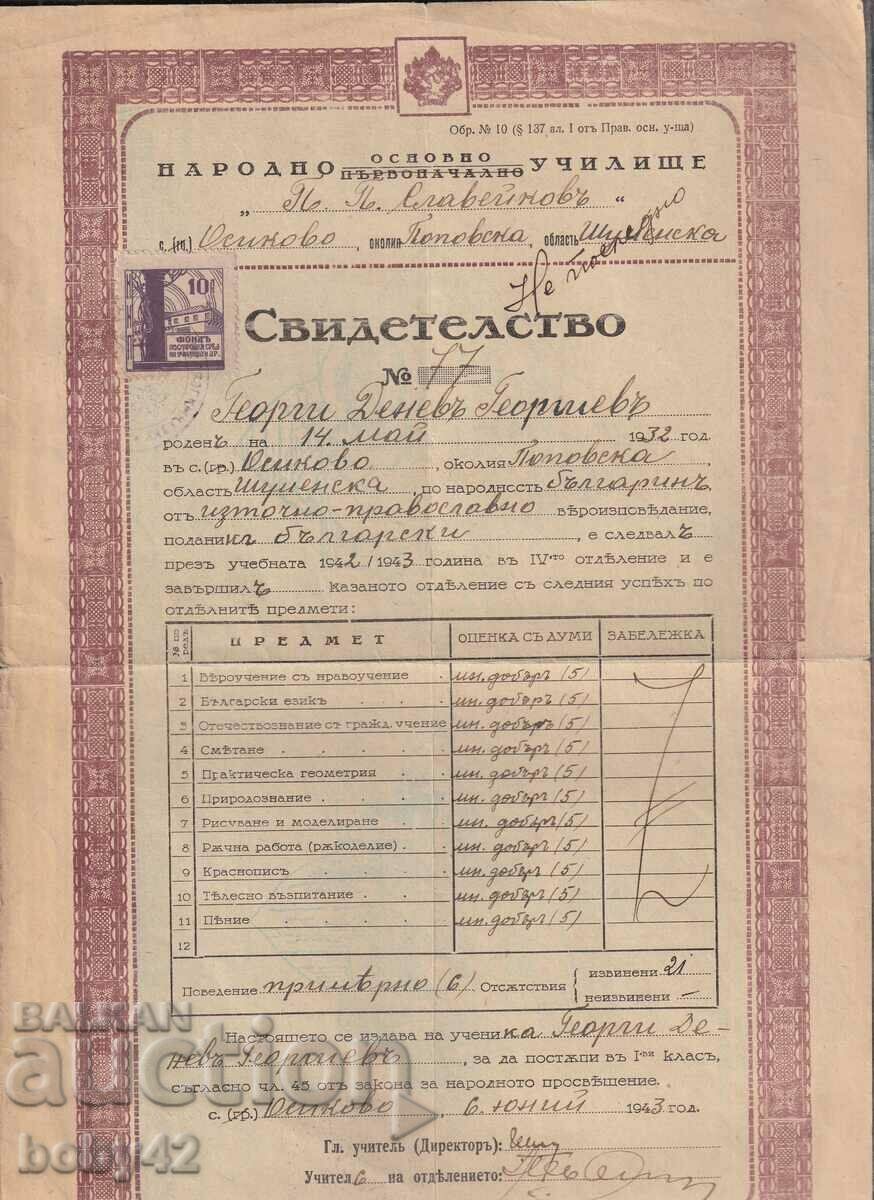 Обр. № 10 (§ 137 ал. I отъ Прав. осн. у-ща)
НАРОДНО ОСНОВНО ПЪРВОНАЧАЛНО УЧИЛИЩЕ
„ П. П. Славейковъ “
с. (гр.) Осиково, околия Поповска, область Шуменска
Не
10
ФОНДЪ
Свидетелство
№ 77
Георги Деневъ Георгиевъ
роденъ на 14. май 1932 год.
въ с. (гр.) Осиково, околия Поповска,
область Шуменска, по народность българинъ,
отъ източно-православно вѣроизповѣдание,
поданикъ български, е следвалъ
презъ учебната 1942/1943 година въ IV-то отдѣление и е
завършилъ казаното отдѣление съ следния успѣхъ по
отдѣлнитѣ предмети:
№ по редъ ПРЕДМЕТ ОЦЕНКА СЪ ДУМИ ЗАБЕЛЕЖКА
1 Вѣроучение съ нравоучение мн. добъръ (5)
2 Български езикъ мн. добъръ (5)
3 Отечествознание съ гражд. учение мн. добъръ (5)
4 Смѣтане мн. добъръ (5)
5 Практическа геометрия мн. добъръ (5)
6 Природознание мн. добъръ (5)
7 Рисуване и моделиране мн. добъръ (5)
8 Рѫчна работа (рѫкоделие) мн. добъръ (5)
9 Краснописъ мн. добъръ (5)
10 Тѣлесно възпитание мн. добъръ (5)
11 Пѣние мн. добъръ (5)
12
Поведение примѣрно (6) Отсѫтствия { извинени 21
неизвинени —
Настоящето се издава на ученика Георги Де-
невъ Георгиевъ, за да постѫпи въ I-ви класъ,
съгласно чл. 45 отъ закона за народното просвѣщение.
с. (гр.) Осиково, 6. юний 1943 год.
Гл. учитель (Директоръ):
Учител на отдѣлението:
BALKAN
auction
boby42